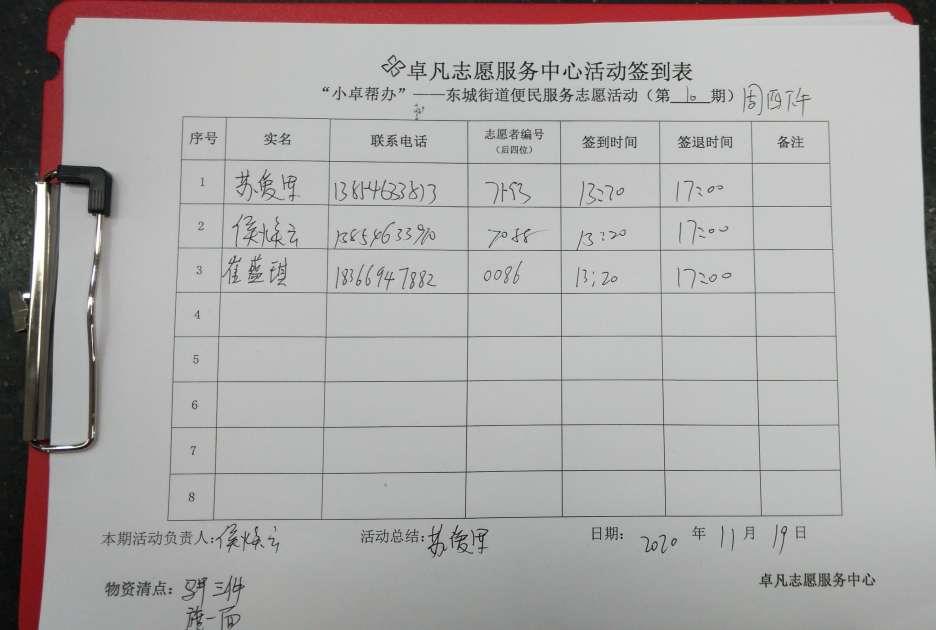 卓凡志愿服务中心活动签到表
“小卓帮办”——东城街道便民服务志愿活动（第10期）周四下午
序号 实名 联系电话 志愿者编号 签到时间 签退时间 备注
（后四位）
1 苏俊里 13:20 17:00
2 侯焕云 7088 13:20 17:00
3 崔蓝琪 18366947882 0086 13:20 17:00
4
5
6
7
8
本期活动负责人：侯焕云 活动总结： 日期： 2020 年 11 月 19 日
物资清点： 三件 卓凡志愿服务中心
旗一面